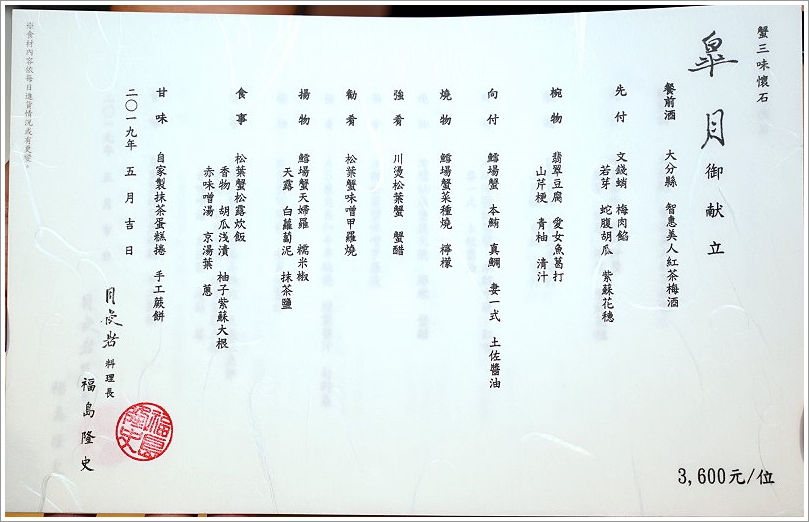 蟹三味懷石
皐月御献立
餐前酒 大分縣 智惠美人紅茶梅酒
先付 文錢蛸 梅肉餡
若芽 蛇腹胡瓜 紫蘇花穗
椀物 翡翠豆腐 愛女魚葛打
山芹梗 青柚 清汁
向付 鱈場蟹 本鮪 真鯛 妻一式 土佐醬油
燒物 鱈場蟹菜種燒 檸檬
強肴 川燙松葉蟹 蟹醋
勸肴 松葉蟹味噌甲羅燒
揚物 鱈場蟹天婦羅 糯米椒
天露 白蘿蔔泥 抹茶鹽
食事 松葉蟹松露炊飯
香物 胡瓜淺漬 柚子紫蘇大根
赤味噌湯 京湯葉 蔥
甘味 自家製抹茶蛋糕捲 手工蕨餅
二〇一九年 五月吉日
料理長
福島隆史
福島隆史
※食材內容依每日進貨情況或有更變。
3,600元/位